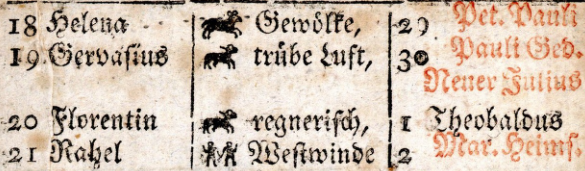 18 Helena Gewölke, 29 Pet. Pauli
19 Gervasius trübe Luft, 30 Pauli Ged.
Neuer Julius
20 Florentin regnerisch, 1 Theobaldus
21 Rahel Westwinde 2 Mar. Heims.